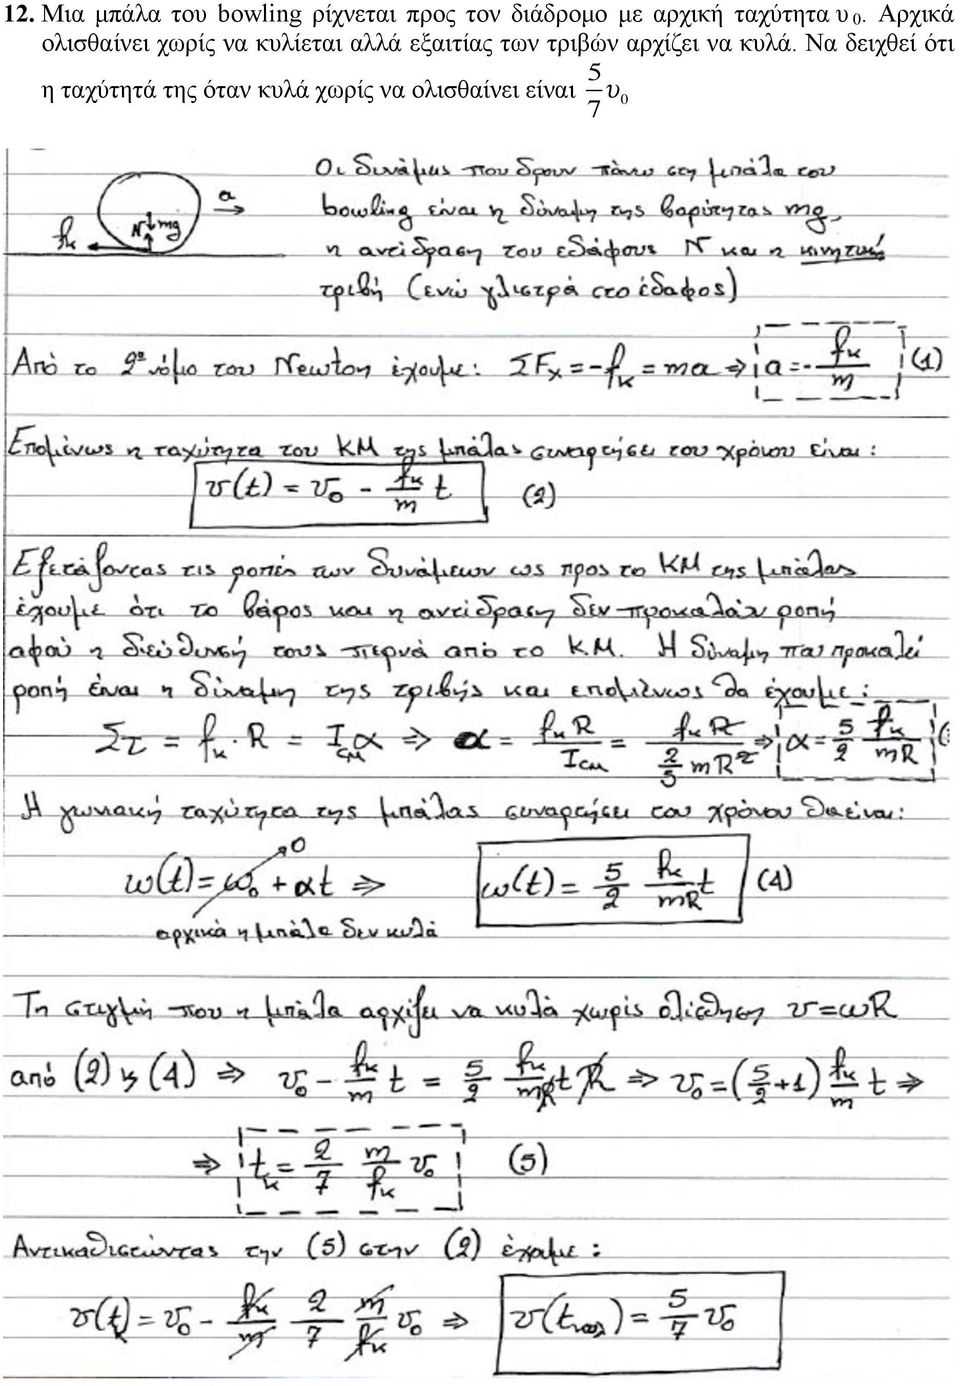 12. Μια μπάλα του bowling ρίχνεται προς τον διάδρομο με αρχική ταχύτητα υ₀. Αρχικά
ολισθαίνει χωρίς να κυλίεται αλλά εξαιτίας των τριβών αρχίζει να κυλά. Να δειχθεί ότι
η ταχύτητά της όταν κυλά χωρίς να ολισθαίνει είναι 5/7 υ₀
Οι δυνάμεις που δρουν πάνω στη μπάλα του
bowling είναι η δύναμη της βαρύτητας mg,
η αντίδραση του εδάφους N και η κινητική
τριβή (ενώ γλιστρά στο έδαφος)
a
N mg
fκ
Από το 2º νόμο του Newton έχουμε: ΣFx = -fκ = ma ⇒ a = - fκ/m (1)
Επομένως η ταχύτητα του ΚΜ της μπάλας συναρτήσει του χρόνου είναι:
υ(t) = υ₀ - fκ/m t (2)
Εξετάζοντας τις ροπές των δυνάμεων ως προς το ΚΜ της μπάλας
έχουμε ότι το βάρος και η αντίδραση δεν προκαλούν ροπή
αφού η διεύθυνσή τους περνά από το Κ.Μ. Η δύναμη που προκαλεί
ροπή είναι η δύναμη της τριβής και επομένως θα έχουμε:
Στ = fκ · R = I_CM α ⇒ α = fκR/I_CM = fκR/(2/5 mR²) ⇒ α = 5/2 fκ/mR (
Η γωνιακή ταχύτητα της μπάλας συναρτήσει του χρόνου θα είναι:
ω(t) = ω₀ + αt ⇒ ω(t) = 5/2 fκ/mR t (4)
0
αρχικά η μπάλα δεν κυλά
Τη στιγμή που η μπάλα αρχίζει να κυλά χωρίς ολίσθηση υ=ωR
από (2) & (4) ⇒ υ₀ - fκ/m t = 5/2 fκ/mR t R ⇒ υ₀ = (5/2 + 1) fκ/m t ⇒
⇒ tκ = 2/7 m/fκ υ₀ (5)
Αντικαθιστώντας την (5) στην (2) έχουμε:
υ(tκ) = υ₀ - fκ/m 2/7 m/fκ υ₀ ⇒ υ(tκυλ) = 5/7 υ₀